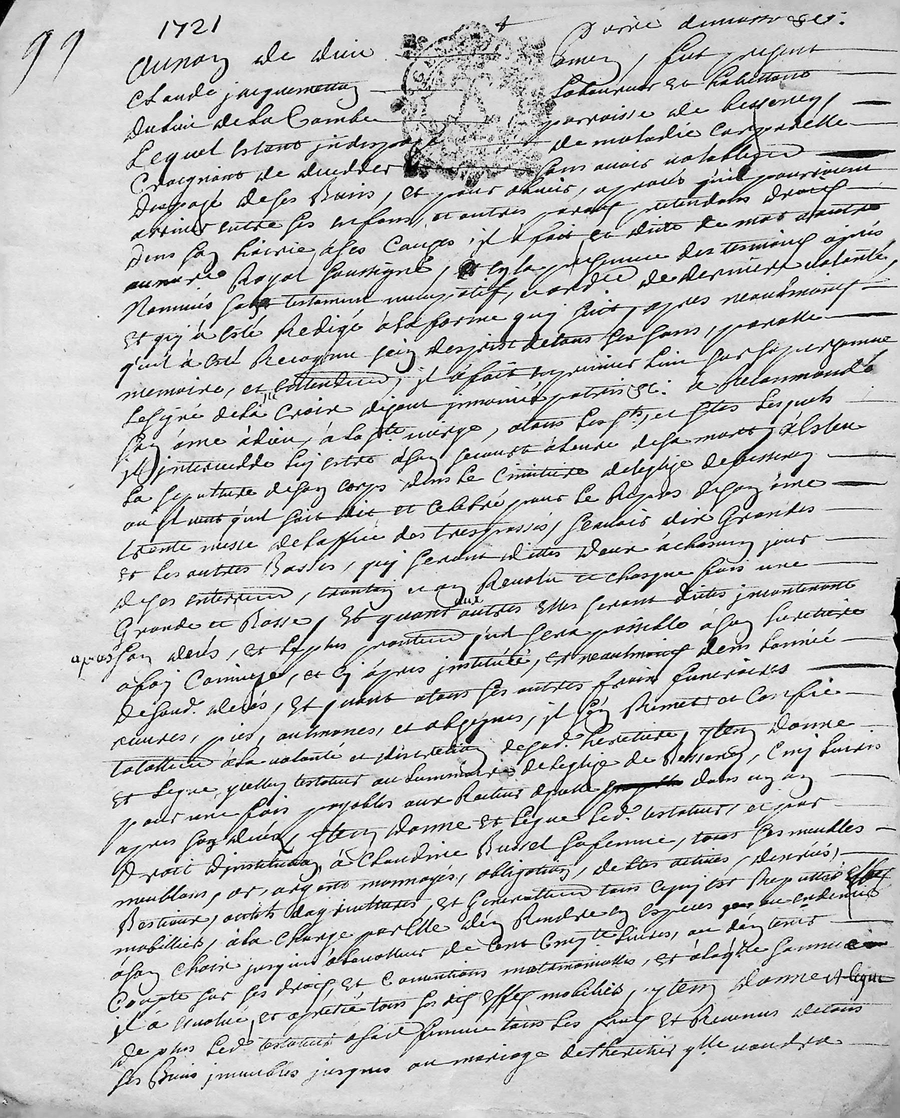 99 1721
Au nom de dieu amen, fut present
Claude jacquemetton laboureur et habittant
du lieu de la Combe parroisse de Bessenay,
Lequel estant indispozé de maladie corporelle
Craignant de decedder sans avoir valablement
disposé de ses Biens, et pour obvier, a procès qui pourroient
arriver entre ses enfans, et autres parans pretendans droits
dans son hoirie a ses Causes, il a fait et dicté de mot a autre
au no.re Royal soussigné, et en la presence des tesmoins après
Nommés son testament nuncupatif, et ordre de derniere volonté,
Et qui a esté Redigé a la forme qui suit, apres neantmoins
qu'il a esté Recognu sain d'esprit de tous ses sens, parolle
memoire, et entendem.t, il a fait imprimer sur sa personne
Le signe de la Croix disant in nomine patris &c. a Recommandé
son ame a dieu, a la ste vierge, a tous les sts, et stes lesquels
la sepulture de son corps dans le Cimitiere de leglise de Bessenay
ou il veut qu'il soit dit et Celebré pour le Repos de son ame
trente messe de la fice des trespassés, scavoir dix Grandes
Et les autres Basses, qui seront dittes deux a chacun jour
de ses enterrem.t, trantan et an Revolu et chasque fois une
Grande et Basse, Et quant aux autres elles seront dittes incontinant
apres son decès, et le plus promtem.t que sera possible a son heretiere
de sond. decès, Et quant a tous ses autres fraix funeraires
œuvres, pies, aumones, et obseques, il s'en Remet et Confie
totallem.t a la volonté et discretion de sad. heretiere, Item donne
Et Legue led. testateur au luminaire de leglise de Bessenay, Cinq Livres
pour une fois payables aux Recteurs d'icelle dans un an
apres son decès, Item donne et Legue led. testateur, et par
Droit d'institution a Claudine Buisset sa femme, tous ses meubles
meublans, or, argent monnoyés, obligations, debtes actives, denrées,
Bestiaux, outils d'agricultures, Et Generallem.t tous ce qui est Reputtés effets
mobiliers, a la charge par elle d'en Rendre en especes ou en deniers
a son choix jusques a la valleur de Cent Cinq.te livres, au d
Compte sur ses droits, et Conventions matrimonialles, et a laquelle somme
il a evalué, et apretié tous ses dits effets mobiliers, Item donne et legue
de plus led. testateur a sad. femme tous les fruits Et Revenus de tous
ses Biens immeubles jusques au mariage de lheretier q.lle voudra